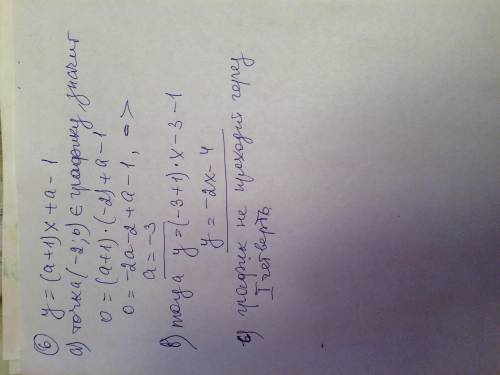 ⑥ y = (a+1)x + a - 1
а) точка (-2; 0) ∈ графику, значит
0 = (a+1)·(-2) + a - 1
0 = -2a - 2 + a - 1, =>
a = -3
в) тогда y = (-3+1)·x - 3 - 1
y = -2x - 4
б) график не проходит через
I четверть